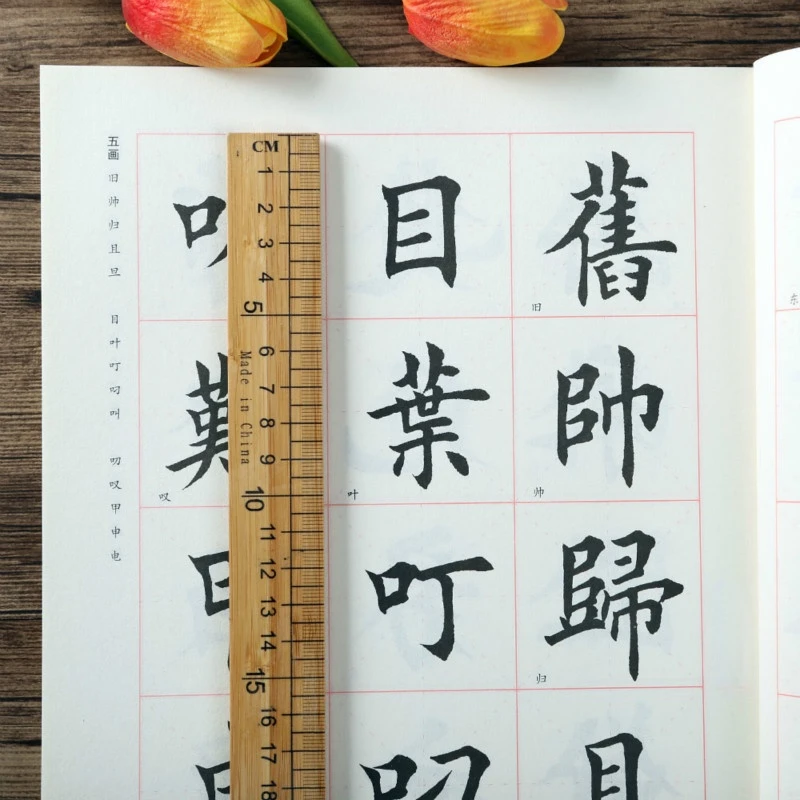 五画
旧帅归且旦
目叶叮叼叫
叹甲申电
舊
旧
帥
帅
歸
归
且
目
葉
叶
叮
叼
叹
CM
1
2
3
4
5
6
7
8
9
10
11
12
13
14
15
16
17
18
Made in China